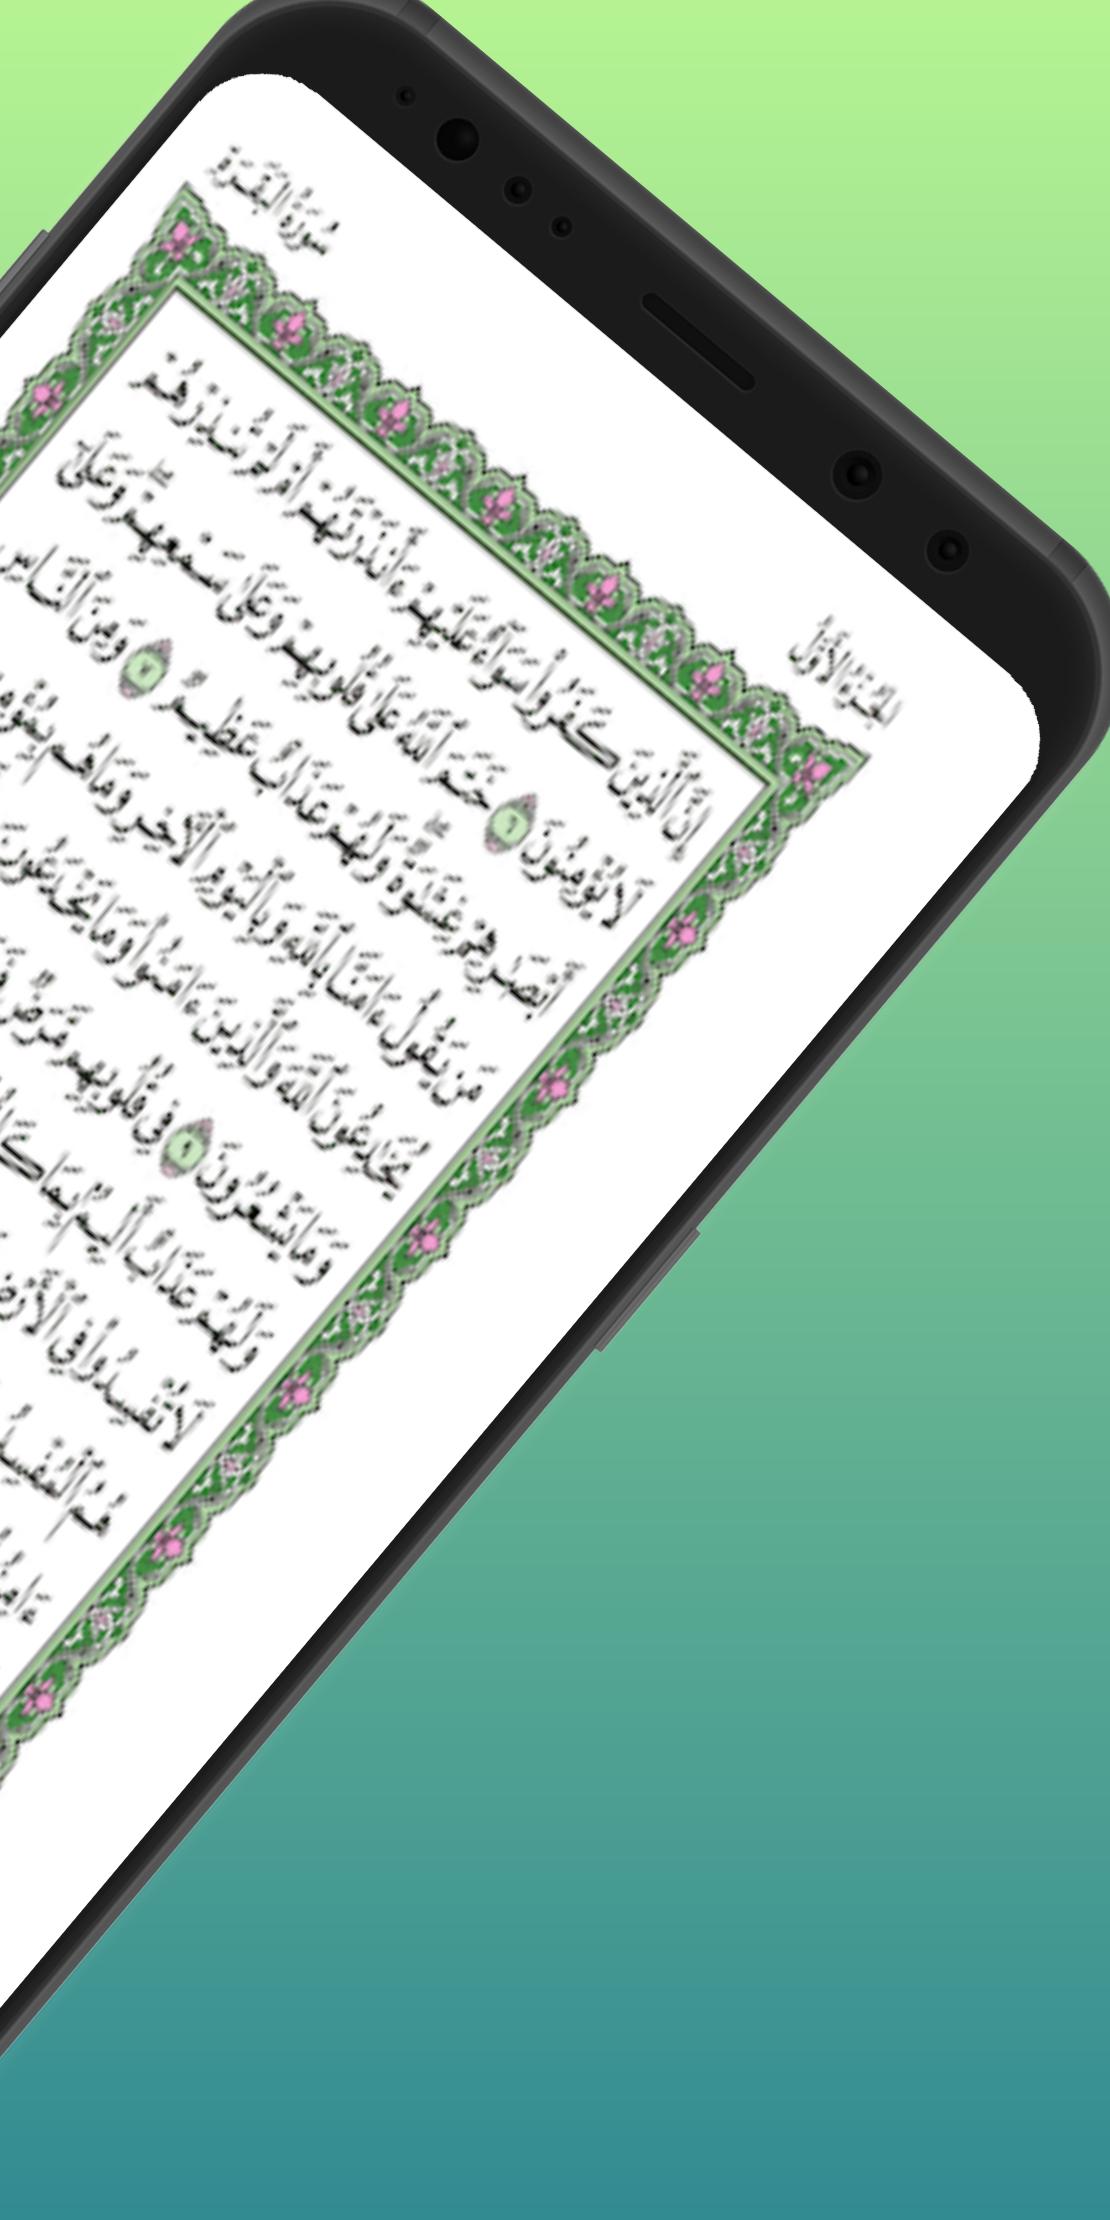 سُورَةُ البَقَرَةِ
الجُزْءُ الأَوَّلُ
إِنَّ ٱلَّذِينَ كَفَرُوا۟ سَوَآءٌ عَلَيْهِمْ ءَأَنذَرْتَهُمْ أَمْ لَمْ تُنذِرْهُمْ
لَا يُؤْمِنُونَ ٦ خَتَمَ ٱللَّهُ عَلَىٰ قُلُوبِهِمْ وَعَلَىٰ سَمْعِهِمْ ۖ وَعَلَىٰٓ
أَبْصَٰرِهِمْ غِشَٰوَةٌ ۖ وَلَهُمْ عَذَابٌ عَظِيمٌ ٧ وَمِنَ ٱلنَّاسِ
مَن يَقُولُ ءَامَنَّا بِٱللَّهِ وَبِٱلْيَوْمِ ٱلْءَاخِرِ وَمَا هُم
يُخَٰدِعُونَ ٱللَّهَ وَٱلَّذِينَ ءَامَنُوا۟ وَمَا يَخْدَعُونَ
وَمَا يَشْعُرُونَ ٩ فِى قُلُوبِهِم مَّرَضٌ
وَلَهُمْ عَذَابٌ أَلِيمٌۢ بِمَا
لَا تُفْسِدُوا۟ فِى ٱلْأَرْضِ
هُمُ